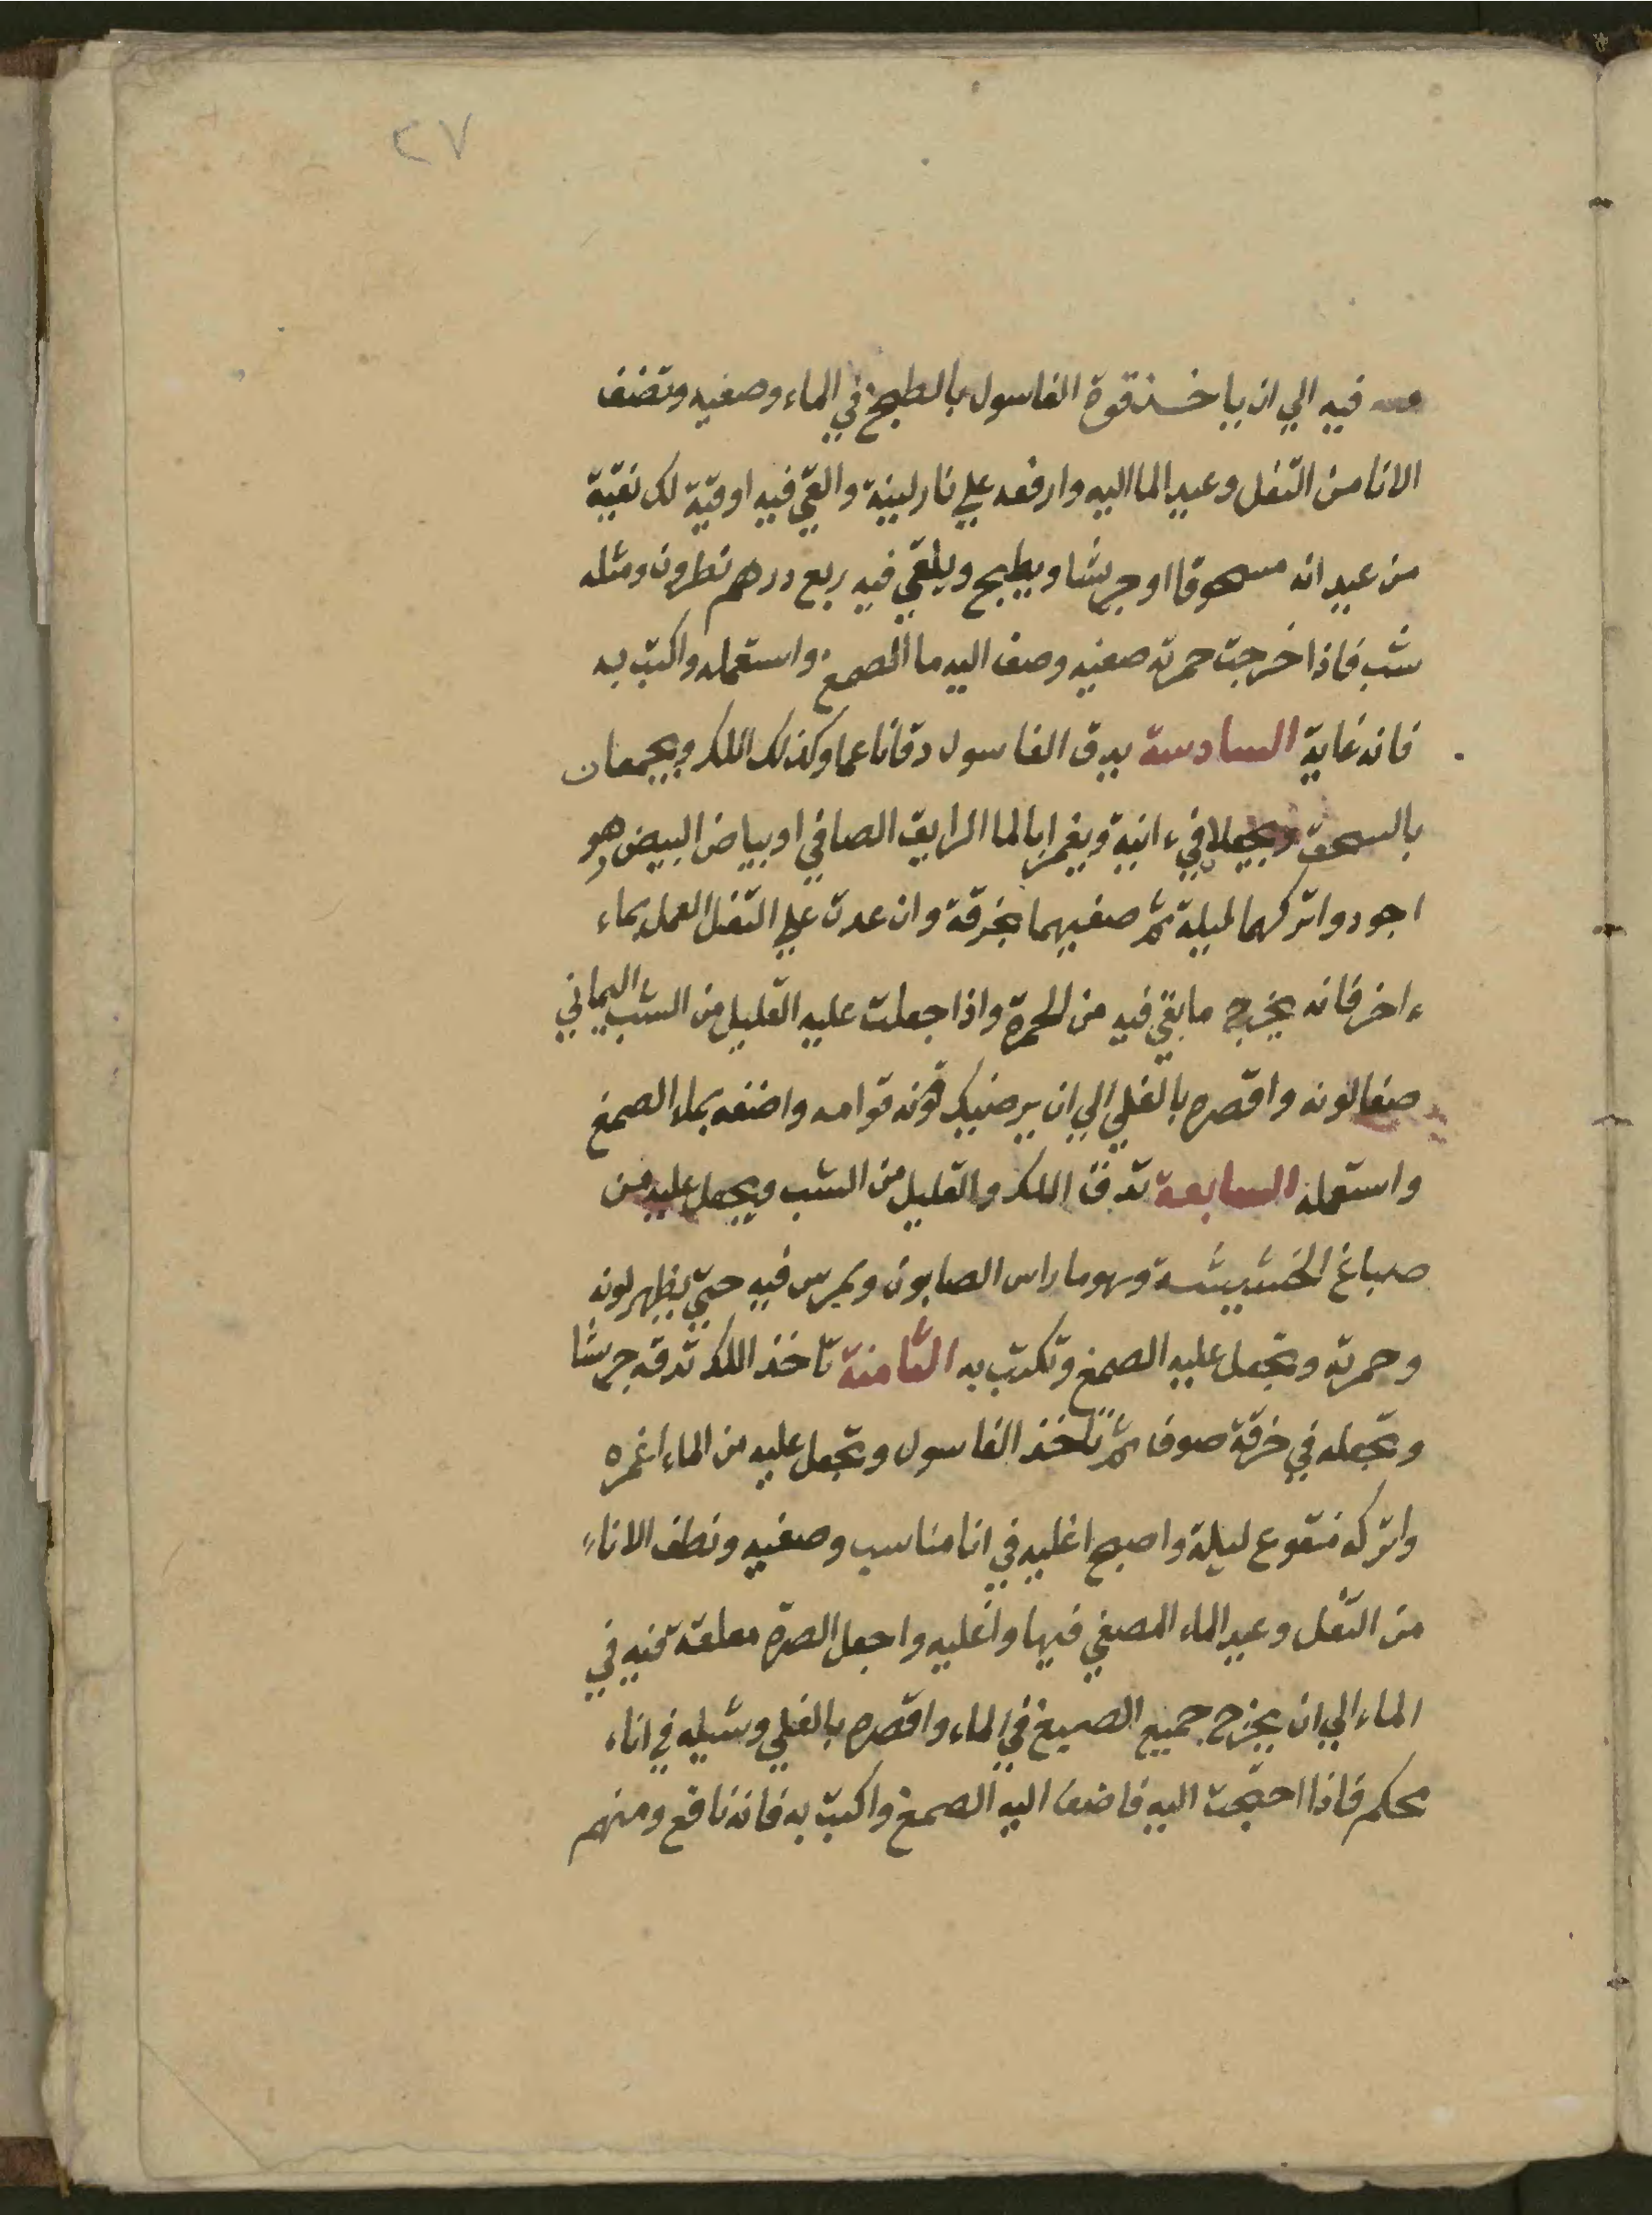 ٢٧
فيه الي ان ياخذ قوة الغاسول بالطبخ في الماء وصفيه وتضف
الانا من التفل وعيد الما اليه وارفعه علي نار لينة والقي فيه اوقية لك نقية
من عيدانه مسحوقا او جريشا ويطبخ ويلقي فيه ربع درهم نطرون ومثله
شب فاذا خرجت حمرته صفيه وضف اليه ما الصمغ واستعمله واكتب به
فانه غاية السادسة يدق الغاسول دقا ناعما وكذلك اللك ويجمعان
بالسحق ويجعلا في ءانية ويغمرا بالما الرايق الصافي او بياض البيض وهو
اجود واتركهما ليلة ثم صفيهما بخرقة وان عدت علي التفل العمل بماء
ءاخر فانه يخرج ما بقي فيه من الحمرة واذا جعلت عليه القليل من الشب اليماني
صفا لونه واقصره بالغلي الي ان يرضيك قوته قوامه واضفه بماء الصمغ
واستعمله السابعة تدق اللك والقليل من الشب ويجعل عليه من
صباغ الخشيشة وهو ما راس الصابون ويمرس فيه حتي يظهر لونه
وحمرته وتجعل عليه الصمغ وتكتب به الثامنة تاخذ اللك تدقه جريشا
وتجعله في خرقة صوف ثم تاخذ الغاسول وتجعل عليه من الماء اغمره
واتركه منقوع ليلة واصبح اغليه في انا مناسب وصفيه ونظف الاناء
من الثفل وعيد الماء المصفي فيها واغليه واجعل الصرة معلقة فيه في
الماء الي ان يخرج جميع الصبيغ في الماء واقصره بالغلي وشيله في اناء
محكم فاذا احتجت اليه فاضف اليه الصمغ واكتب به فانه نافع ومنهم